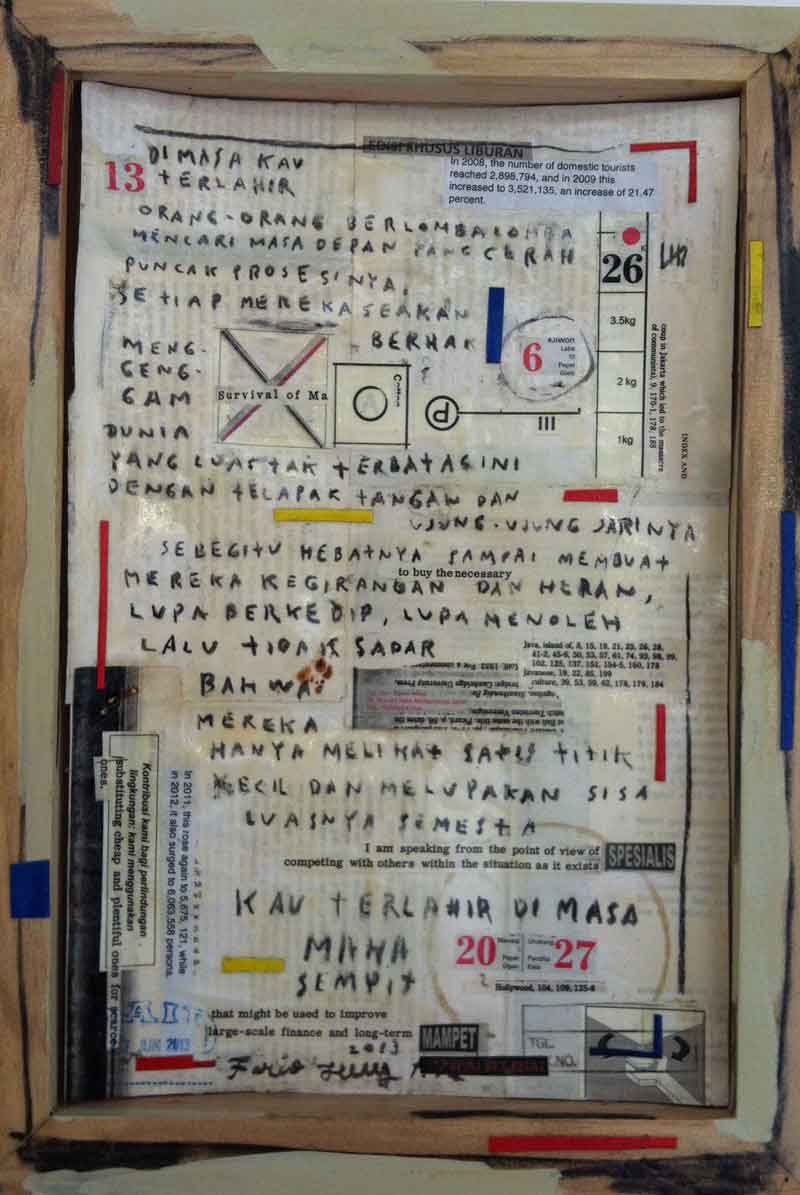 EDISI KHUSUS LIBURAN
In 2008, the number of domestic tourists
reached 2,898,794, and in 2009 this
increased to 3,521,135, an increase of 21.47
percent.
13
DI MASA KAU
TERLAHIR
ORANG-ORANG BERLOMBA LOMBA
MENCARI MASA DEPAN YANG CERAH
PUNCAK PROSESINYA,
SETIAP MEREKA SEAKAN
BERHAK
26
3.5kg
2 kg
1kg
coup in Jakarta which led to the massacre
of communists), 9, 170-1, 178, 185
INDEX AND
6
MENG-
GENG-
GAM
Survival of Ma
DUNIA
YANG LUAS TAK TERBATAS INI
DENGAN TELAPAK TANGAN DAN
UJUNG-UJUNG JARINYA
SEBEGITU HEBATNYA SAMPAI MEMBUAT
to buy the necessary
MEREKA KEGIRANGAN DAN HERAN,
LUPA BERKEDIP, LUPA MENOLEH
LALU TIDAK SADAR
Java, island of, 8, 15, 19, 21, 23, 26, 28,
102, 125, 137, 151, 154-5, 160, 178
Javanese, 19, 22, 85, 199
culture, 39, 53, 59, 62, 178, 179, 184
BAHWA
MEREKA
HANYA MELIHAT SATU TITIK
KECIL DAN MELUPAKAN SISA
LUASNYA SEMESTA
Kontribusi kami bagi perlindungan
lingkungan: kami menggunakan
substituting cheap and plentiful ones for scarce
ones.
In 2011, this rose again to 5,675,121, while
in 2012, it also surged to 6,063,558 persons.
I am speaking from the point of view of
competing with others within the situation as it exists
SPESIALIS
KAU TERLAHIR DI MASA
MAHA
SEMPIT
20
27
Hollywood, 104, 109, 125-6
that might be used to improve
large-scale finance and long-term
MAMPET
JUNI 2013
2013
TGL.
NO.